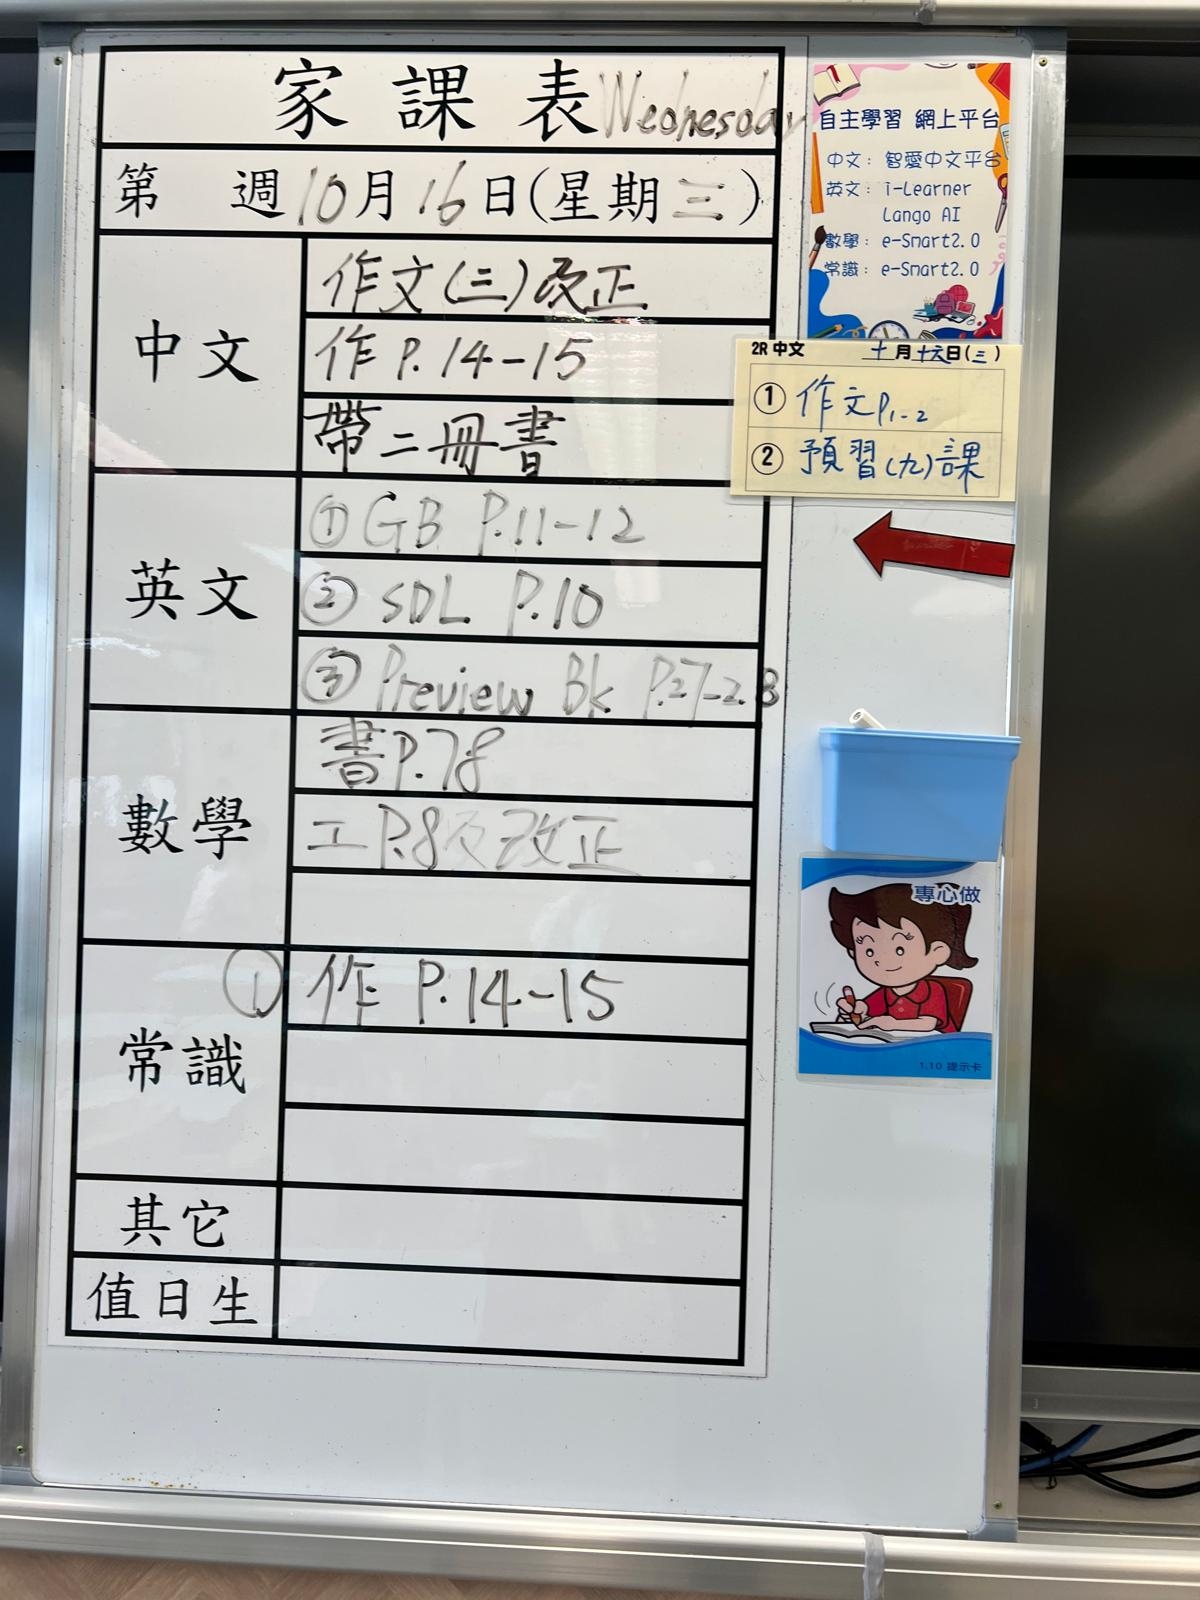 家課表 Wednesday
第 週 10月16日(星期三)
中文
作文(三)改正
作 P.14-15
帶二冊書
英文
① GB P.11-12
② SDL P.10
③ Preview Bk P.27-28
數學
書 P.78
工 P.8及改正
常識
① 作 P.14-15
其它
值日生
自主學習 網上平台
中文：智愛中文平台
英文：i-Learner
Lango AI
數學：e-Smart2.0
常識：e-Smart2.0
2R 中文 十月十六日(三)
① 作文P1-2
② 預習(九)課
專心做
1.10 提示卡